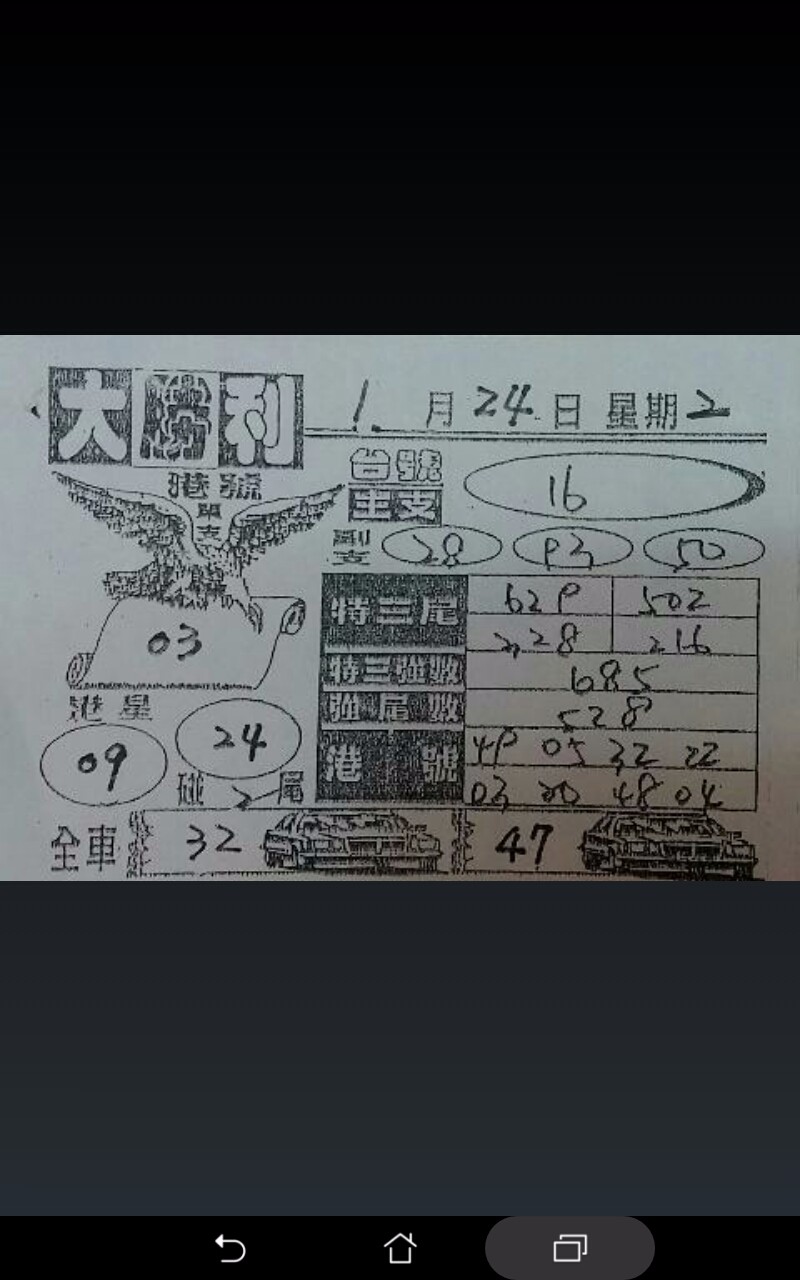 大勝利 1.月24.日星期2
港號單支 03
台號主支 16
副支 28 93 50
特三尾 629 502
228 216
特三強數 685
強尾數 528
港號 49 05 32 22
03 20 48 04
港星 09 24
碰2尾
全車 32 47